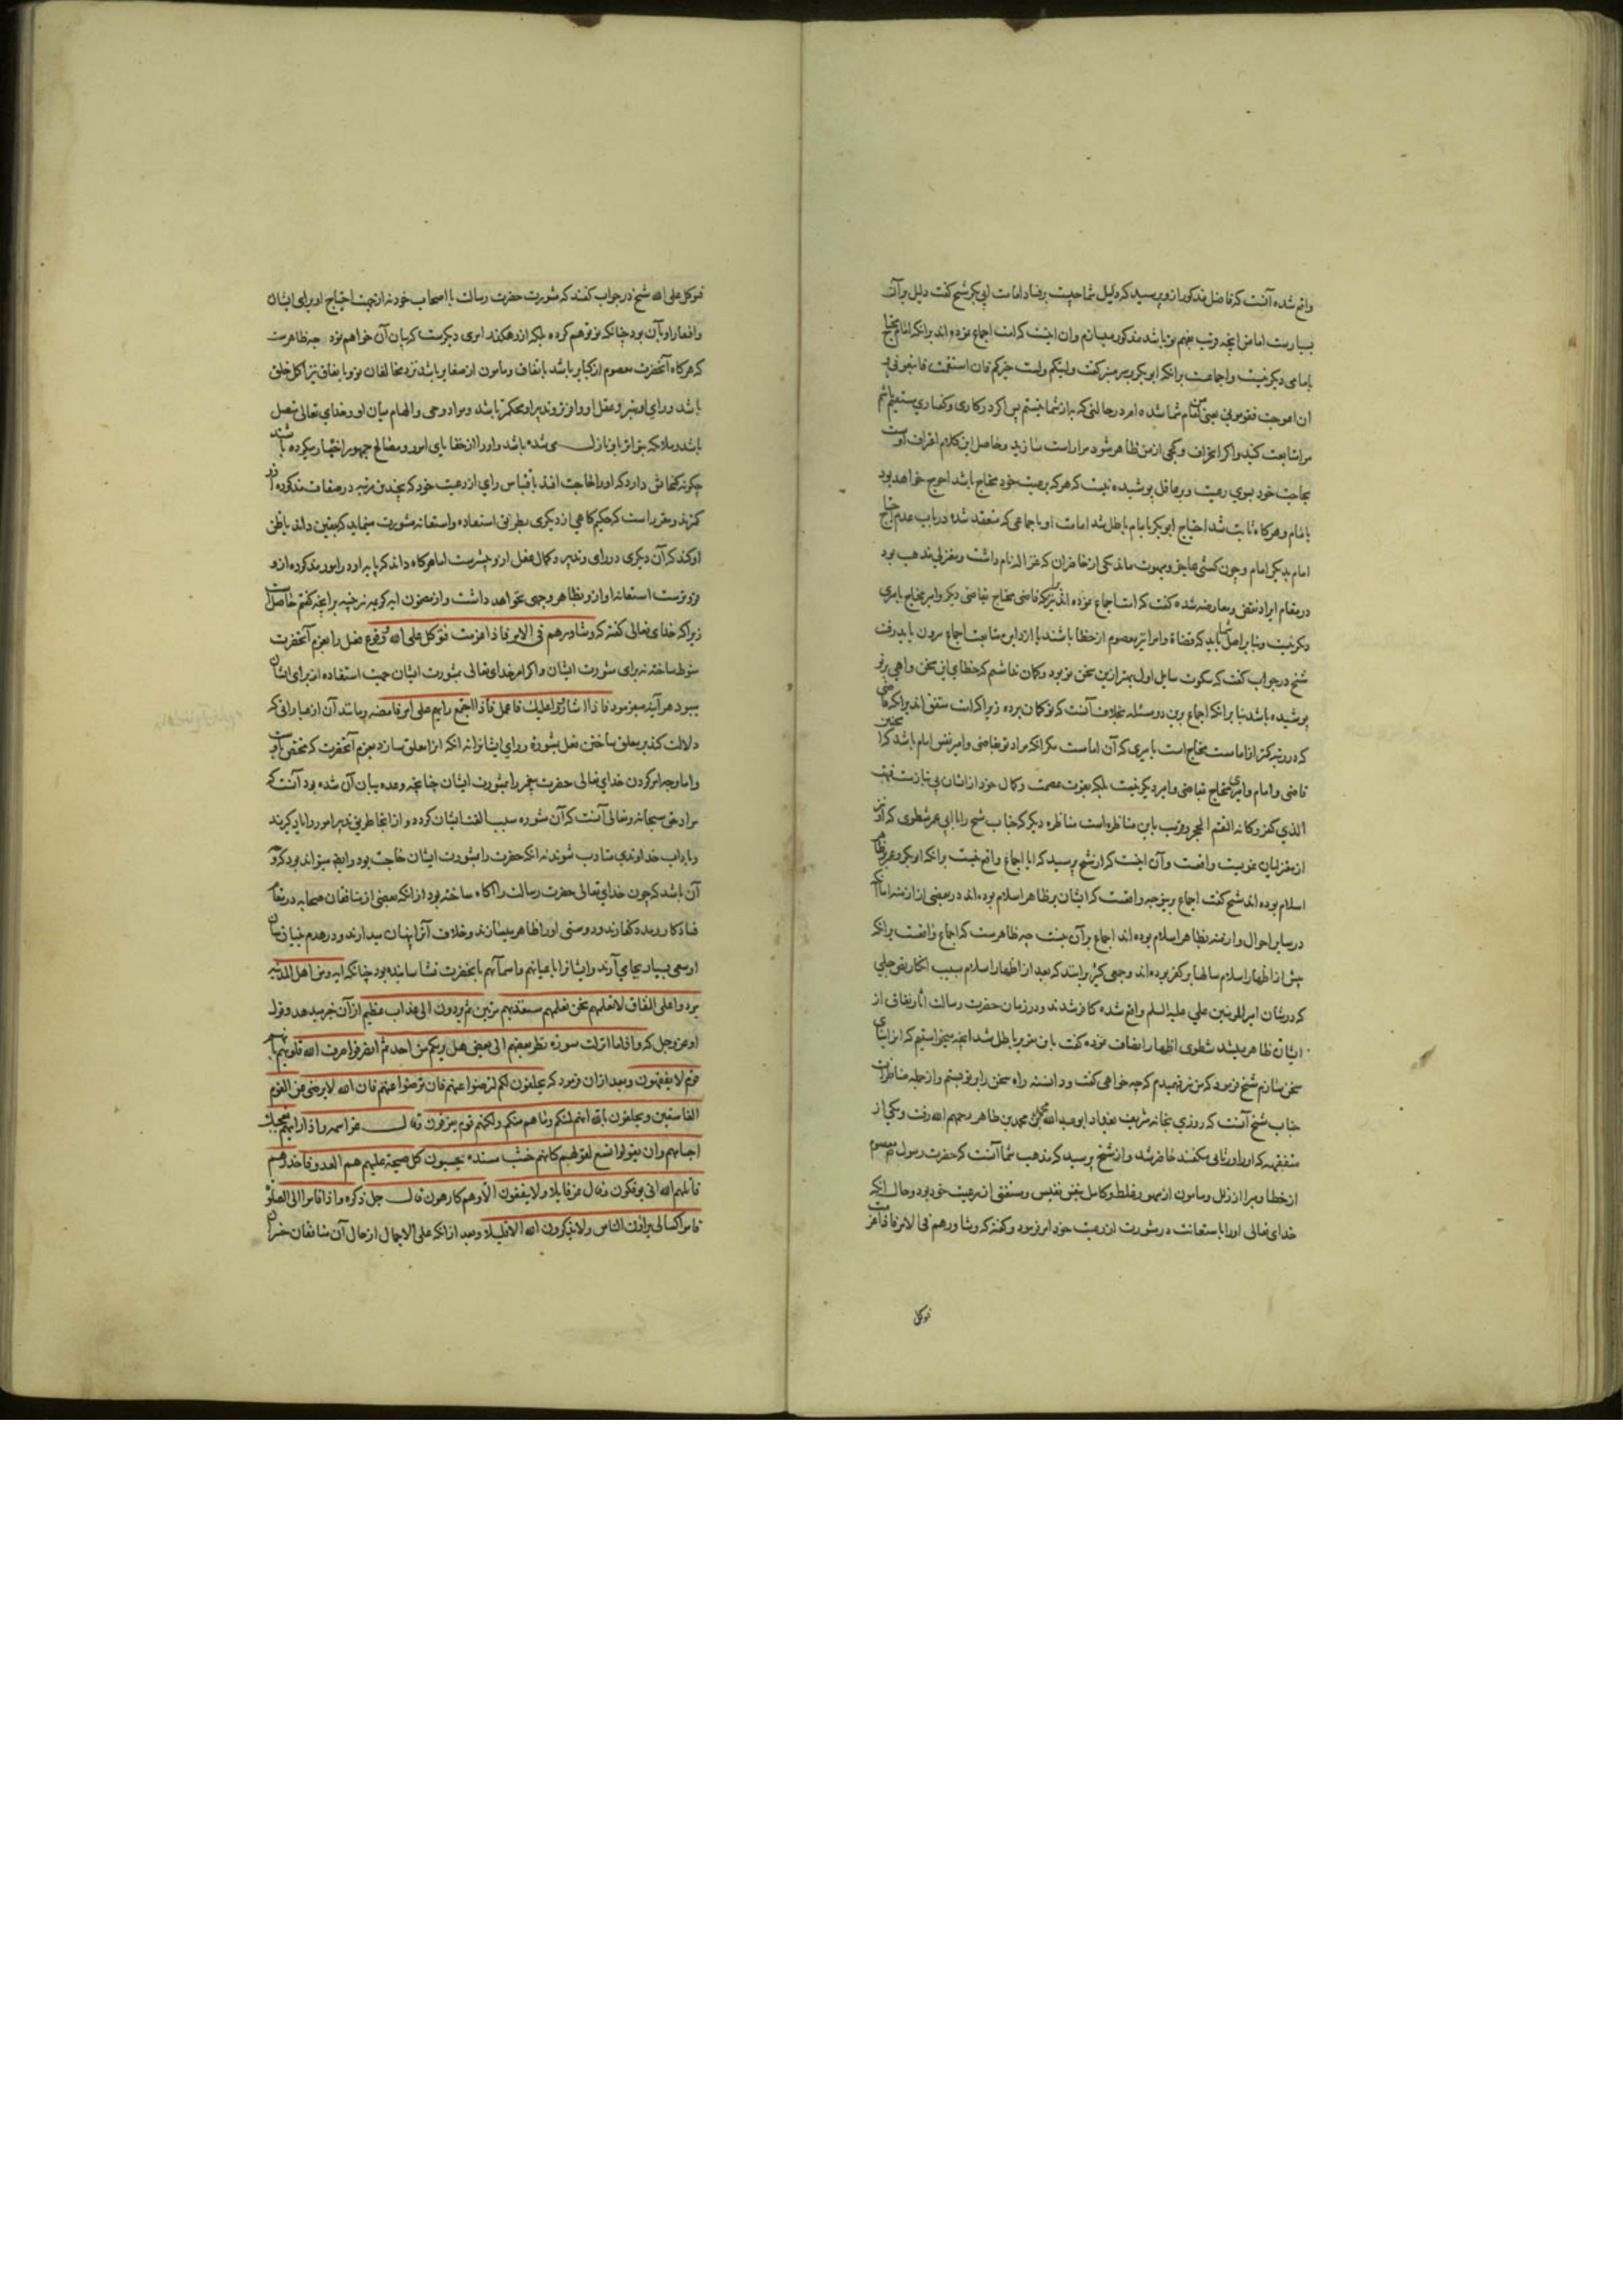 واقع شده آنست که فاضل مذکور ازو پرسید که دلیل شما چیست بر فساد امامت ابی بکر شیخ گفت دلیل بر آن
بسیارست اما من آنچه قریب بفهم تو باشد مذکور میسازم و آن اینست که امت اجماع نموده اند برانکه امام محتاج
بامامی دیگر نیست و اجماعست برانکه ابوبکر بر سر منبر گفت ولیتکم ولست بخیرکم فان استقمت فاتبعونی و
ان اعوججت فقومونی یعنی من امام شما شده ام در حالتی که بهتر از شما نیستم پس اگر در کاری و گفتاری مستقیم باشم
مرا متابعت کنید و اگر انحراف و کجی از من ظاهر شود مرا راست سازید و حاصل این کلام اعتراف اوست
بحاجت خود بسوی رعیت و بر عاقل پوشیده نیست که هر که برعیت خود محتاج باشد احوج خواهد بود
بامام و هرگاه ثابت شد احتیاج ابوبکر بامام باطل شد امامت او باجماعی که منعقد شده در باب عدم احتیاج
امام بدیگر امام و چون کسی عاجز و مبهوت ماند یکی از حاضران که عزاله نام داشت و معتزلی مذهب بود
در مقام ایراد نقض و معارضه شده گفت که امت اجماع نموده اند برآنکه قاضی محتاج بقاضی دیگر و امیر محتاج بامیری
دیگر نیست و بنا بر اصل شما باید که قضاة و امرا نیز معصوم از خطا باشند یا از این متابعت اجماع بیرون باید رفت
شیخ در جواب گفت که سکوت سایل اول بهتر ازین سخن تو بود و گمان نداشتم که خطای این سخن واهی بر تو
پوشیده باشد بنا برانکه اجماع برین دو مسئله بخلاف آنست که تو گمان برده زیرا که امت متفق اند برانکه قاضی
که در رتبه کمتر از امامست محتاج است بامیری که آن امامست مگر انکه مراد تو بقاضی و امیر نفس امام باشد چنین که
قاضی و امام و امیری محتاج بقاضی و امیر دیگر نیست بلکه بعزت عصمت و کمال خود از ایشان بی نیازست فبهت
الذی کفر و کانه القم الحجر و قریب باین مناظره است مناظره دیگر که جناب شیخ را با ابی عمر شطوی که او نیز
از معتزلیان غویست واقعست و آن اینست که از شیخ پرسید که ایا اجماع واقع نیست برانکه ابوبکر و عمر بر ظاهر
اسلام بوده اند شیخ گفت اجماع برین وجه واقعست که ایشان بر ظاهر اسلام بوده اند در بعضی از ازمنه اما آنکه
در سایر احوال و ازمنه بظاهر اسلام بوده اند اجماع بر آن نیست چه ظاهرست که اجماع واقعست برانکه
پیش از اظهار اسلام سالها بر کفر بوده اند و جمعی کثیر برآنند که بعد از اظهار اسلام بسبب انکار نص جلی
که در شان امیر المومنین علی علیه السلم واقع شده کافر شدند و در زمان حضرت رسالت آثار نفاق از
ایشان ظاهر میشد شطوی اظهار انصاف نموده گفت باین تقریر باطل شد آنچه میخواستیم که از اینجای
سخن سازم شیخ فرمود که من نیز فهمیدم که چه خواهی گفت و دانسته راه سخن را بر تو بستم و از جمله مناظرات
جناب شیخ آنست که روزی بخانه شریف بغداد ابو عبد الله محمد بن محمد بن طاهر رحمهم الله رفت و یکی از
متفقهه که او را ورثانی میگفتند حاضر شد و از شیخ پرسید که مذهب شما آنست که حضرت رسول معصوم
از خطا و مبرا از زلل و مامون از سهو و غلط و کامل بنفس نفیس و مستغنی از رعیت خود بود و حال آنکه
خدای تعالی او را باستعانت در مشورت از رعیت خود امر فرمود و گفته که وشاورهم فی الامر فاذا عزمت
فتوکل
فتوکل علی الله شیخ در جواب گفتند که مشورت حضرت رسالت با اصحاب خود نه از جهت احتیاج او برای ایشان
و افتقار او بآن بود چنانکه تو توهم کرده بلکه از رهگذر امری دیگرست که بیان آن خواهم نمود چه ظاهرست
که هرگاه آنحضرت معصوم از کبایر باشد باتفاق و مامون از صغایر باشد نزد مخالفان تو و باتفاق نیز اکمل خلق
باشد و رای او بهتر و عقل او وافرتر و تدبیر او محکمتر باشد و مواد وحی و الهام میان او و خدای تعالی متصل
باشد و ملائکه بتواتر باو نازل می شده باشد و او را از خفایای امور و مصالح جمهور اخبار میکرده باشند
چگونه گنجایش دارد که او را حاجت افتد باقتباس رای از رعیت خود که بچندین مرتبه در صفات مذکوره از او
کمترند و مقرر است که حکیم گاهی از دیگری بطریق استفاده و استعانه مشورت مینماید که یقین داند یا ظن
او کند که آن دیگری در رای و تدبیر و کمال عقل ازو بیشترست اما هرگاه داند که پایه او در امور مذکوره ازو
فروترست استعانه او ازو بظاهر وجهی نخواهد داشت و از مضمون ایه کریمه نیز تنبیه بر آنچه گفتم حاصل است
زیرا که خدای تعالی گفته که وشاورهم فی الامر فاذا عزمت فتوکل علی الله و وقوع فعل را بعزم آنحضرت
منوط ساخته نه برای مشورت ایشان و اگر امر خدای تعالی بمشورت ایشان جهت استفاده از برای ایشان
میبود هر آینه میفرمود فاذا اشاروا علیک فاعمل فاذا اجتمع رایهم علی امر فامضه و مانند آن از عباراتی که
دلالت کند بر معلق ساختن فعل بمشورة و رای ایشان نه انکه انرا معلق سازد بعزم آنحضرت که مختص باوست
و اما وجه امر کردن خدای تعالی حضرت پیغمبر را بمشورت ایشان چنانچه وعده بیان آن شده بود آنست که
مراد حق سبحانه و تعالی آنست که آن مشوره سبب الفت ایشان گردد و از انجا طریق تدبیر امور را یاد گیرند
و باداب خداوندی متادب شوند نه انکه حضرت را بمشورت ایشان حاجت بود و ایضا میتواند بود که وجه
آن باشد که چون خدای تعالی حضرت رسالت را اگاه ساخته بود از انکه بعضی از منافقان صحابه در مقام
فساد کار و بددکفارند و دوستی او را ظاهر میسازند و خلاف آنرا پنهان میدارند و در هدم بنیان
او سعی بسیار بجای آرند و ایشانرا باعیانهم و اسمآئهم بانحضرت نشناسانیده بود چنانکه ایه و من اهل المدینه
مردوا علی النفاق لاتعلمهم نحن نعلمهم سنعذبهم مرتین ثم یردون الی عذاب عظیم از آن خبر میدهد و قول
او عز و جل که و اذا ما انزلت سوره نظر بعضهم الی بعض هل یریکم من احد ثم انصرفوا صرف الله قلوبهم بانهم
قوم لا یفقهون و بعد ازان فرمود که یحلفون لکم لترضوا عنهم فان ترضوا عنهم فان الله لایرضی عن القوم
الفاسقین و یحلفون بالله انهم لمنکم وما هم منکم ولکنهم قوم یفرقون و قال عز اسمه و اذا رایتهم تعجبک
اجسامهم وان یقولوا تسمع لقولهم کانهم خشب مسنده یحسبون کل صیحة علیهم هم العدو فاحذرهم
قاتلهم الله انی یوفکون و قال عز قایلا ولا ینفقون الا وهم کارهون و قال جل ذکره و اذا قاموا الی الصلوة
قاموا کسالی یراؤن الناس ولا یذکرون الله الا قلیلا و بعد از انکه علی الاجمال از حال آن منافقان خبر